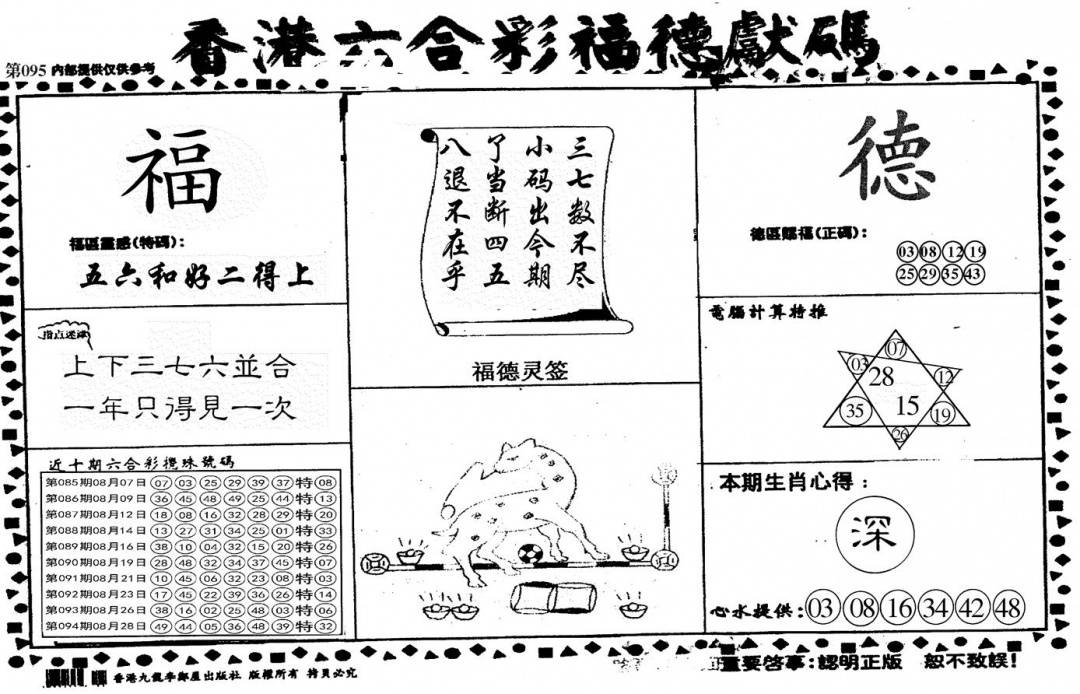 香港六合彩福德獻碼
第095 內部提供仅供参考
福
福區靈感(特碼):
五六和好二得上
指点迷津
上下三七六並合
一年只得見一次
近十期六合彩攪珠號碼
第085期08月07日 07 03 25 29 39 37 特 08
第086期08月09日 36 45 48 49 25 44 特 13
第087期08月12日 18 08 16 32 28 29 特 20
第088期08月14日 13 27 31 34 25 01 特 33
第089期08月16日 38 10 04 32 15 20 特 26
第090期08月19日 28 48 32 34 37 45 特 07
第091期08月21日 10 45 06 32 23 08 特 03
第092期08月23日 17 45 22 39 36 26 特 14
第093期08月26日 38 16 02 25 48 03 特 06
第094期08月28日 49 44 05 36 48 39 特 32
三七数不尽
小码出今期
了当断四五
八退不在乎
福德灵签
德
德區賜福(正碼):
03 08 12 19
25 29 35 43
電腦計算特推
07
03 28 12
35 15 19
26
本期生肖心得:
深
心水提供:03 08 16 34 42 48
香港九龍李鄭屋出版社 版權所有 拷貝必究
重要啓事:認明正版 恕不致誤!